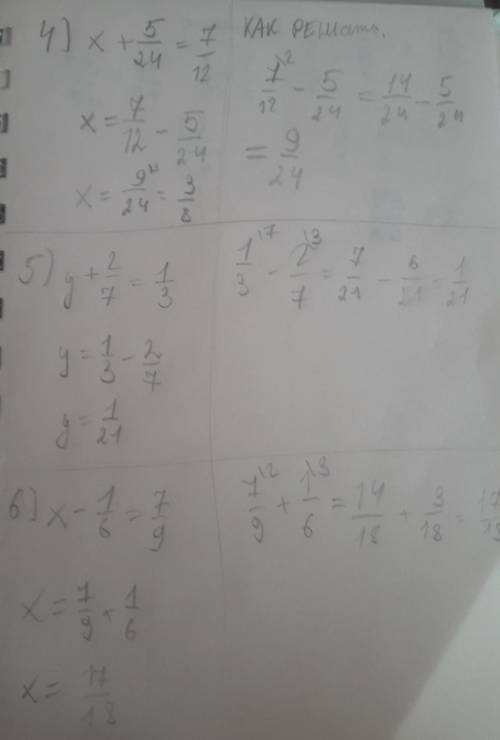 4) x + 5/24 = 7/12
x = 7/12 - 5/24
x = 9/24 = 3/8
КАК РЕШать.
7\2/12 - 5/24 = 14/24 - 5/24
= 9/24
5) y + 2/7 = 1/3
y = 1/3 - 2/7
y = 1/21
1\7/3 - 2\3/7 = 7/21 - 6/21 = 1/21
6) x - 1/6 = 7/9
x = 7/9 + 1/6
x = 17/18
7\2/9 + 1\3/6 = 14/18 + 3/18 = 17/18